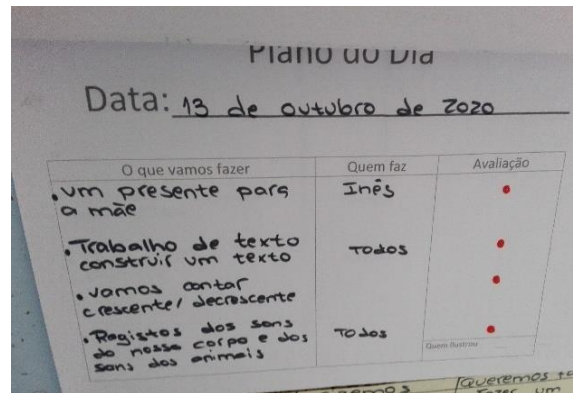 Plano do Dia
Data: 13 de outubro de 2020
O que vamos fazer Quem faz Avaliação
.um presente para Inês
a mãe
.Trabalho de texto Todos
construir um texto
.vamos contar
crescente/decrescente
.Registos dos sons Todos
do nosso corpo e dos
sons dos animais
Quem ilustrou
Queremos
um